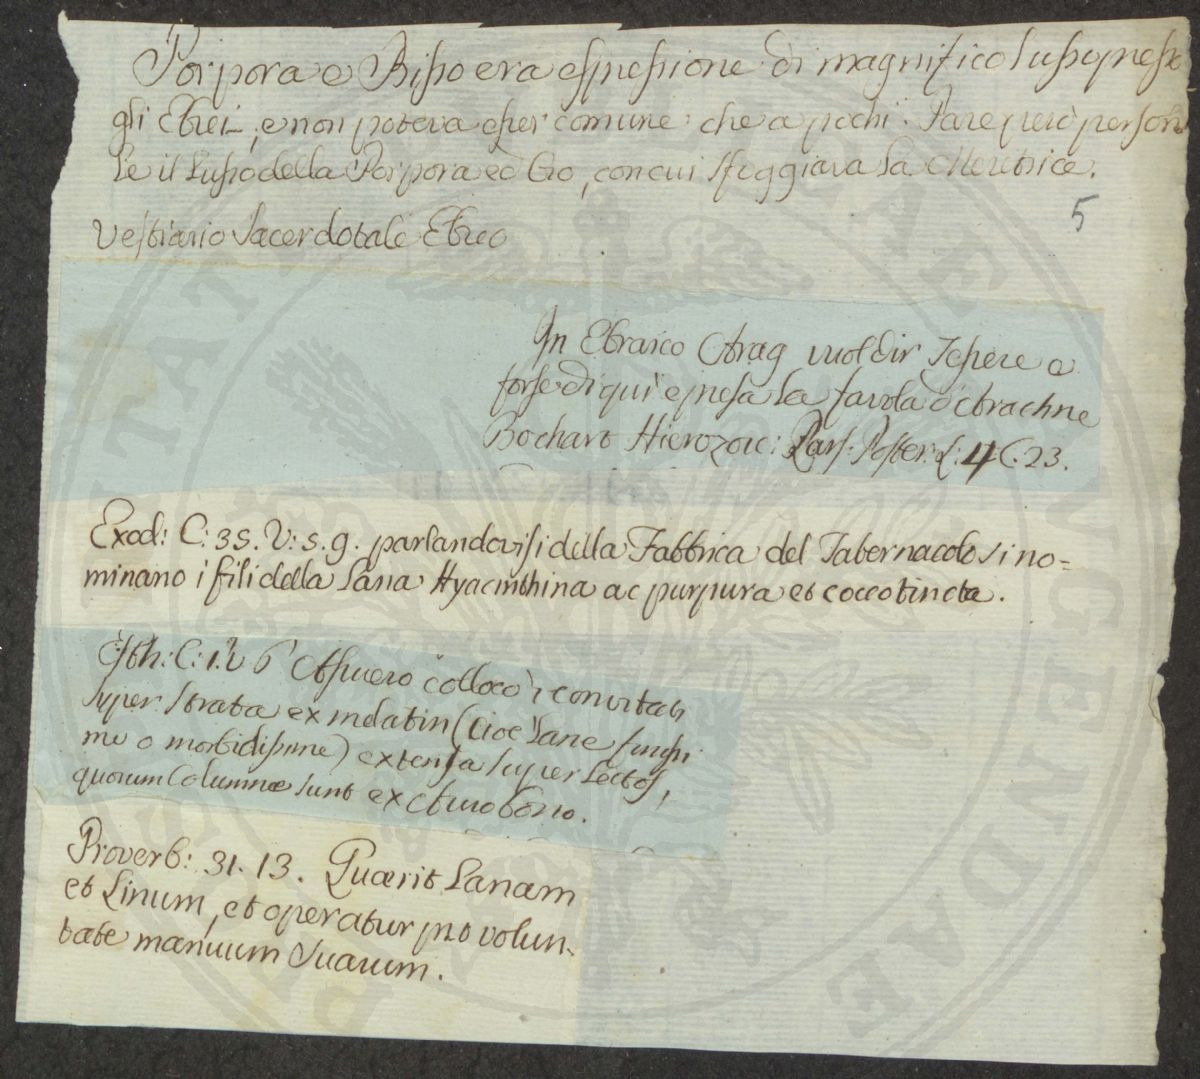 Porpora e Bisso era espressione di magnifico lusso presso
gli Ebrei, e non poteva esser comune che a pochi. Pare però person
le il Lusso della Porpora ed Oro, con cui sfoggiava la Meretrice.
5
Vestiario Sacerdotale Ebreo
In Ebraico Arag vuol dir Tessere e
forse di qui è presa la favola d'Arachne
Bochart Hierozoic: Pars. Poster. L: 4 C. 23.
Exod: C: 35. V: 5. 9. parlandovisi della Fabbrica del Tabernacolo si no=
minano i fili della Lana Hyacinthina ac purpura et cocco tincta.
Esth: C: 1. V 6 Assuero collocò i convitati
super strata ex melatin (cioè Lane finissi
me o morbidissime) extensa super Lectos,
quorum Columnæ sunt ex Auro bono.
Proverb: 31. 13. Quærit Lanam
et Linum, et operatur pro volun-
tate manuum Suarum.